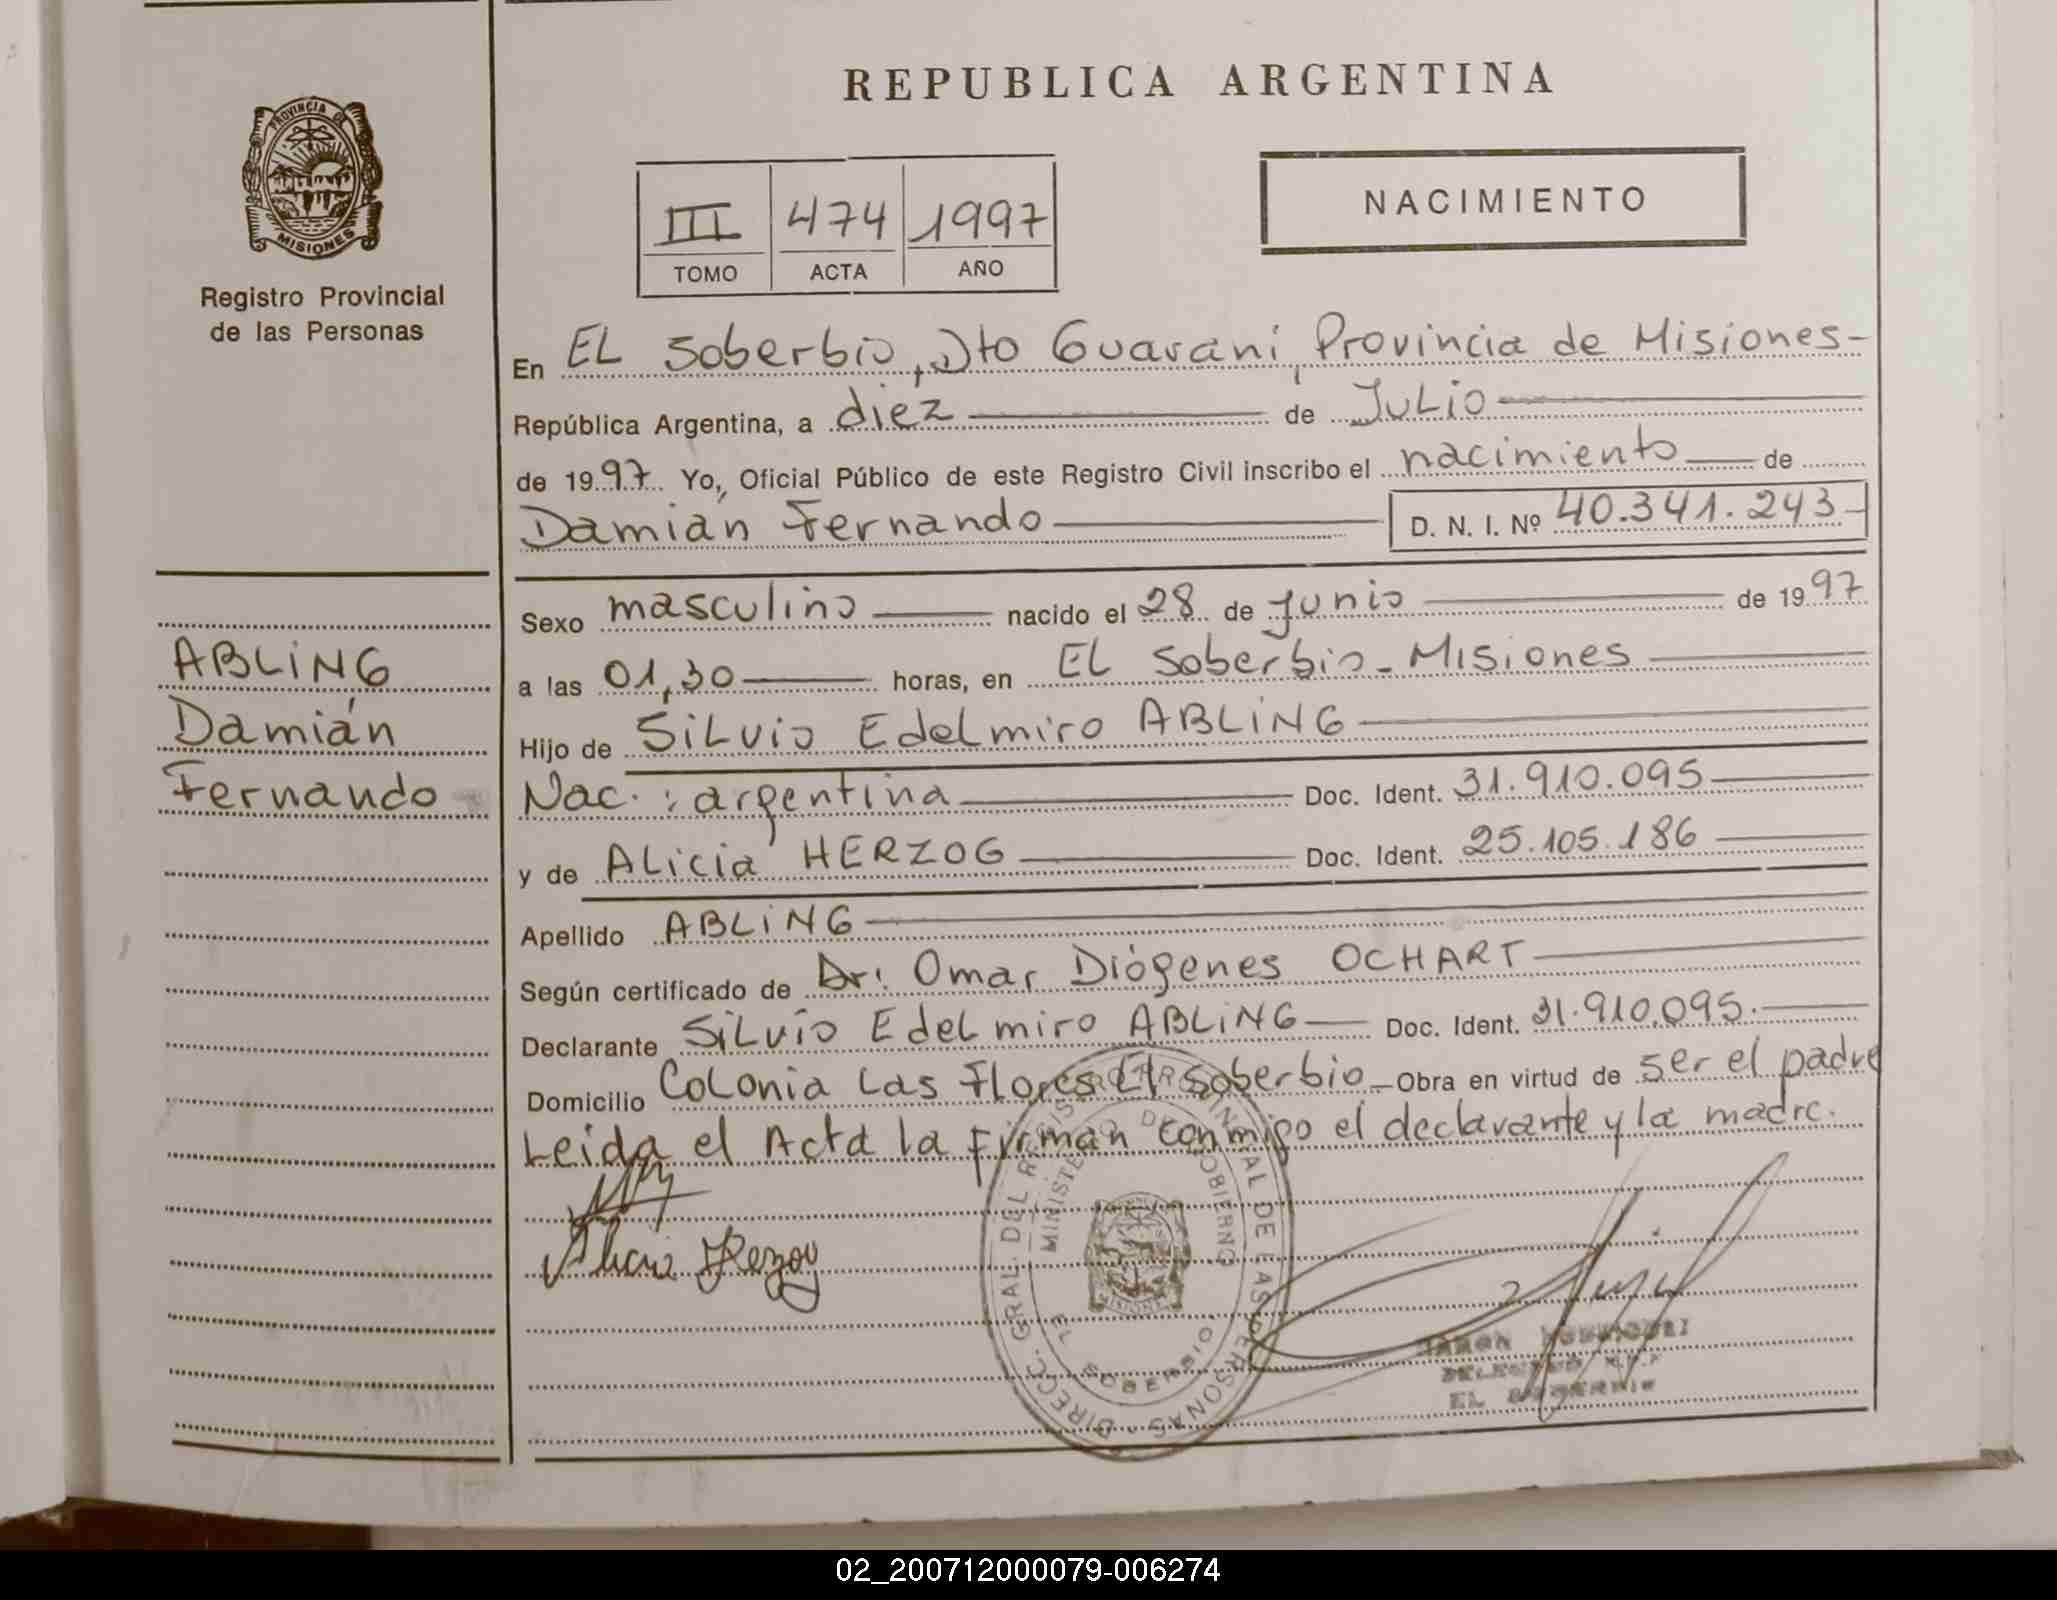 REPUBLICA ARGENTINA
PROVINCIA DE
MISIONES
Registro Provincial
de las Personas
III 474 1997
TOMO ACTA AÑO
NACIMIENTO
En EL Soberbio, Dto Guaraní, Provincia de Misiones-
República Argentina, a diez de Julio
de 1997 Yo, Oficial Público de este Registro Civil inscribo el nacimiento de
Damián Fernando D. N. I. Nº 40.341.243
Sexo masculino nacido el 28 de Junio de 1997
a las 01,30 horas, en EL Soberbio - Misiones
Hijo de SiLvio Edelmiro ABLiNG
Nac. : argentina Doc. Ident. 31.910.095
y de ALicia HERZOG Doc. Ident. 25.105.186
Apellido ABLiNG
Según certificado de Dr: Omar Diógenes OCHART
Declarante SiLvio EdeLmiro ABLiNG Doc. Ident. 31.910.095.
Domicilio CoLonia Las Flores El Soberbio Obra en virtud de ser el padre
Leida el Acta la firman conmigo el declarante y la madre.
ABLiNG
Damián
Fernando
DIRECC. GRAL. DEL REGISTRO PROVINCIAL DE LAS PERSONAS
MINISTERIO DE GOBIERNO
EL SOBERBIO
MISIONES
Alicia
EL SOBERBIO
02_200712000079-006274